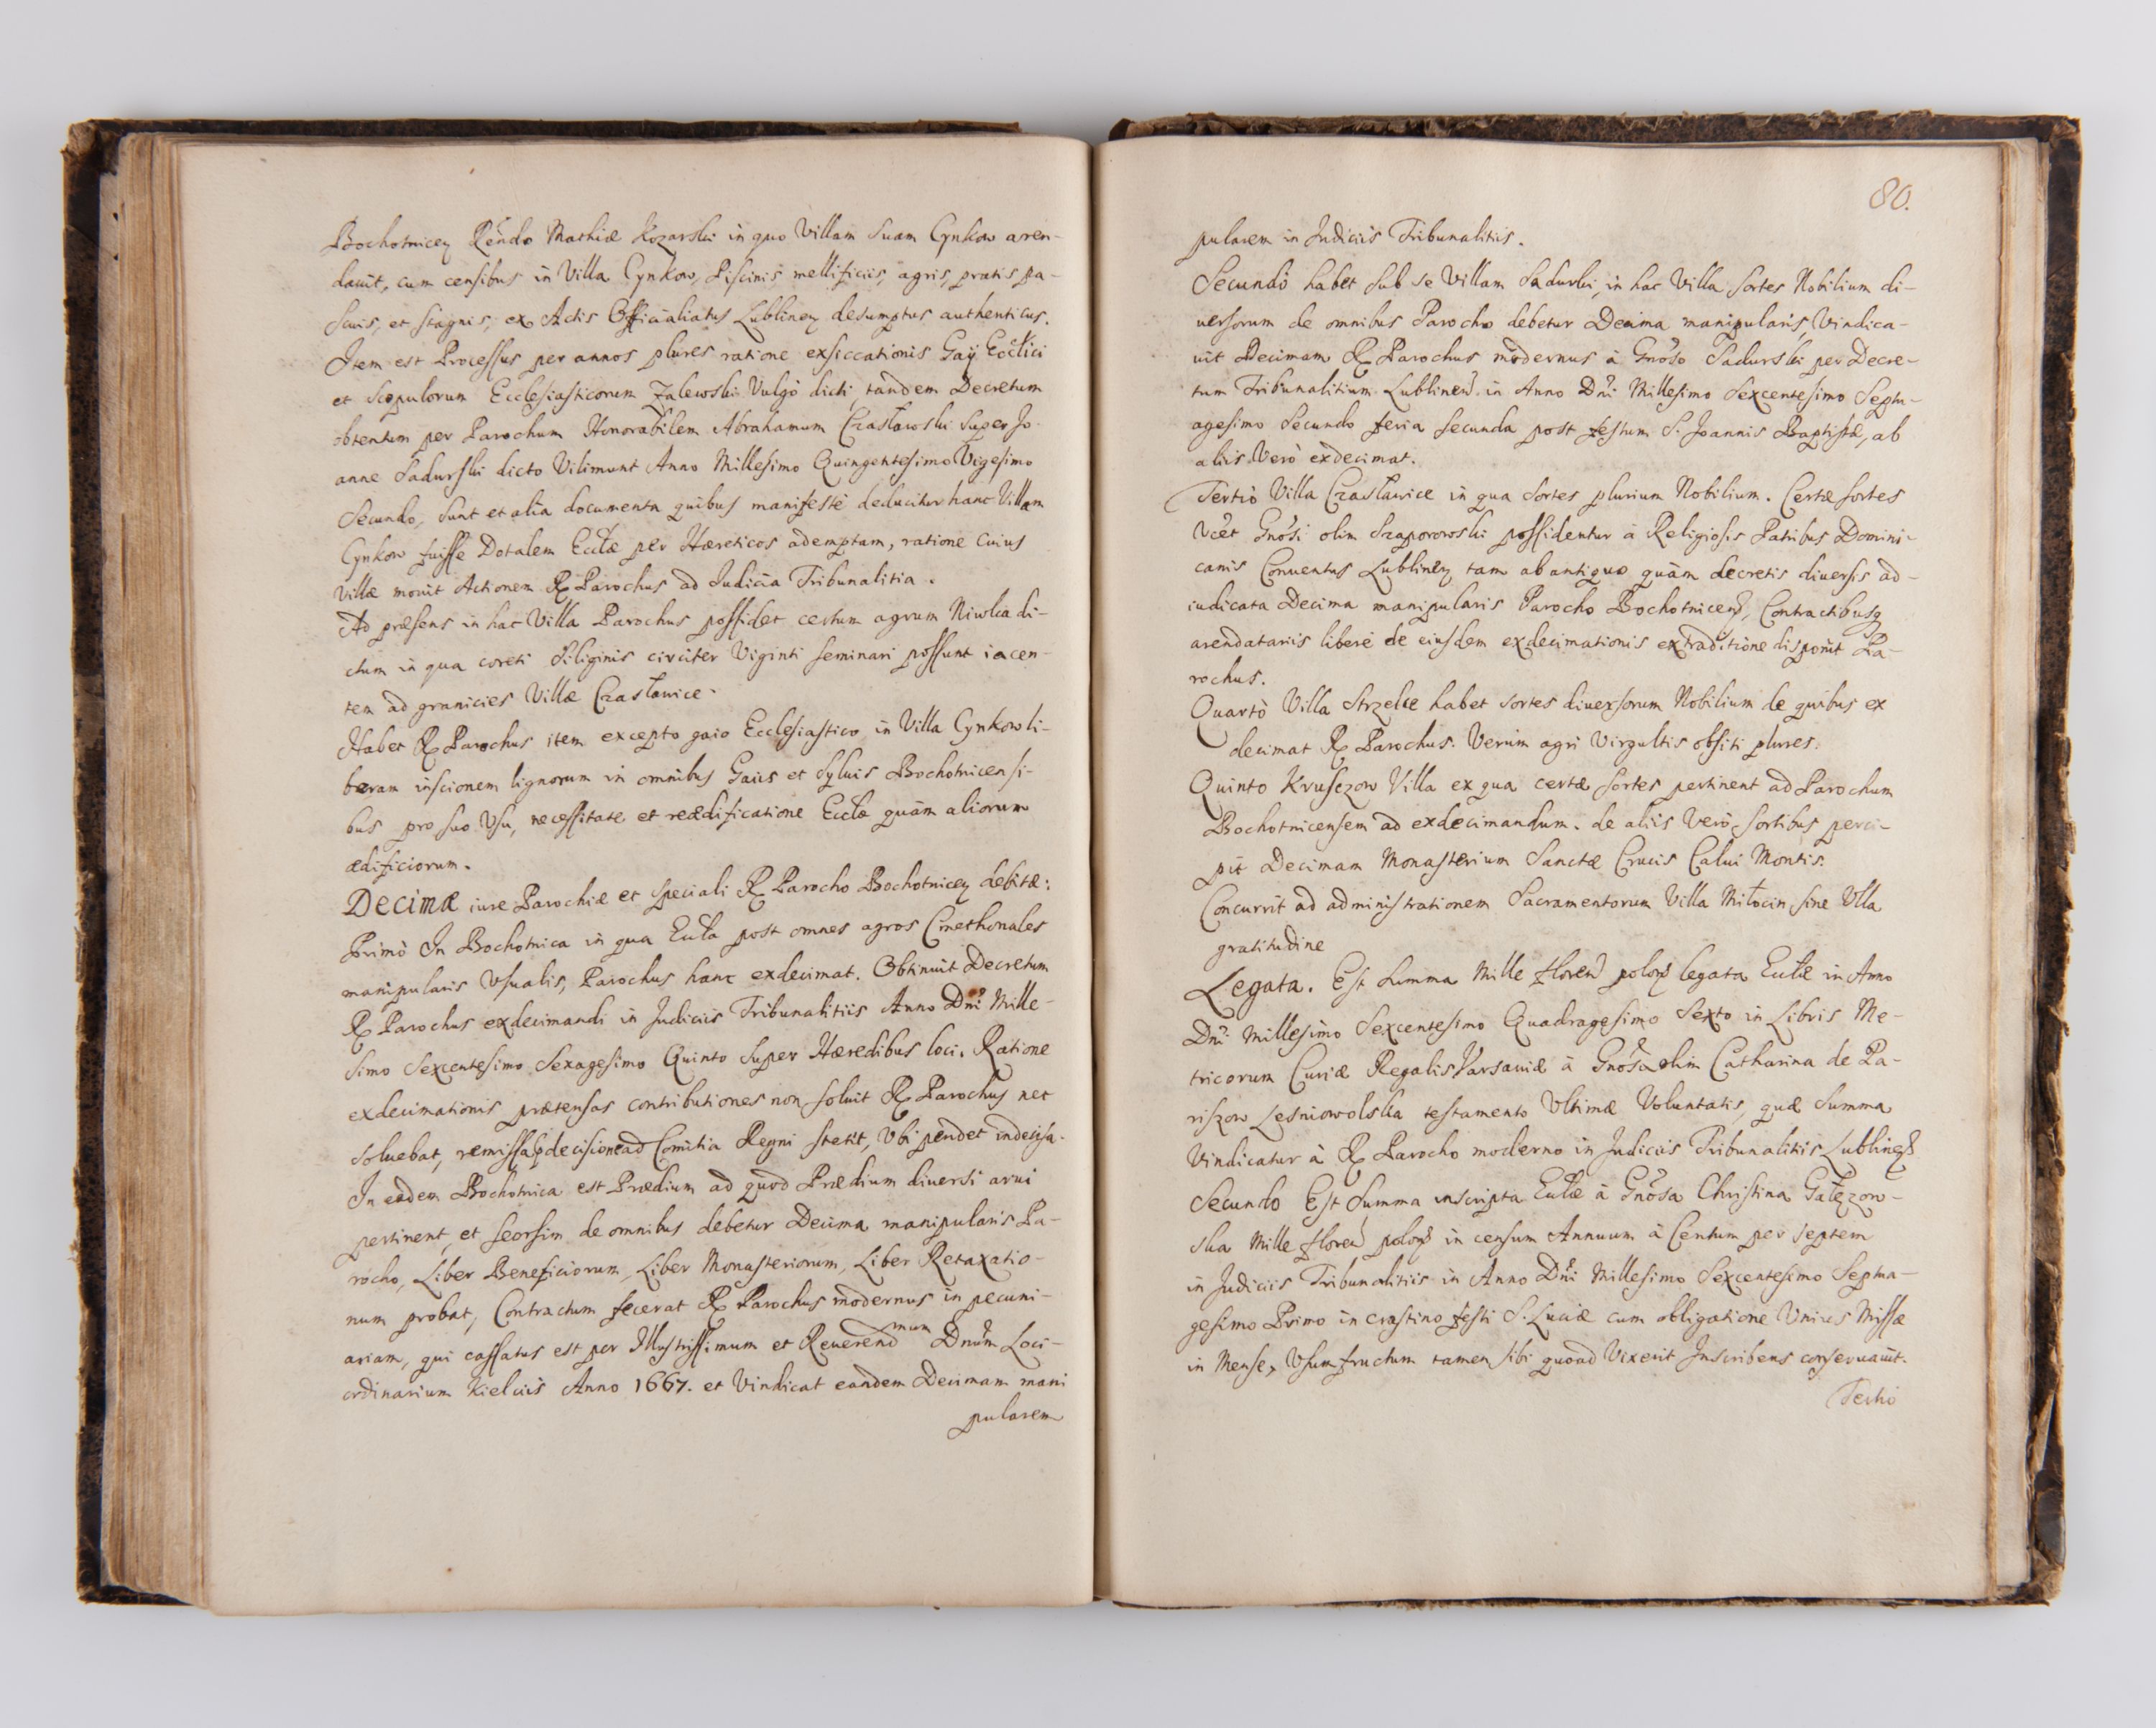 Bochotnicen Rendo Mathiæ Kozarski in quo Villam Suam Cynkow aren-
dauit, cum censibus in Villa Cynkow, Piscinis mellificiis, agris, pratis pa-
scuis, et stagnis, ex Actis Officialiatus Lublinen desumptus authenticus.
Item est Processus per annos plures ratione exsiccationis Gaÿ Ecclici
et Scopulorum Ecclesiasticorum Zalewski Vulgò dicti, tandem Decretum
obtentum per Parochum Honorabilem Abrahamum Czasławski Super Jo-
anne Sadurski dicto Vilimunt Anno Millesimo Quingentesimo Vigesimo
Secundo, Sunt et alia documenta quibus manifestè deducitur hanc Villam
Cynkow fuisse Dotalem Ecclæ per Hæreticos ademptam, ratione Cuius
Villæ mouit Actionem R Parochus ad Judicia Tribunalitia.
Ad præsens in hac Villa Parochus possidet certum agrum Niwka di-
ctum in qua coreti Siliginis circiter Viginti seminari possunt iacen-
tem ad granicies Villæ Czasławice.
Habet R Parochus item excepto gaio Ecclesiastico in Villa Cynkow li-
beram inscionem lignorum in omnibus Gaiis et Syluis Bochotnicensi-
bus pro suo Vsu, necessitate et reædificatione Ecclæ quàm aliorum
ædificiorum.
Decimæ iure Parochiæ et speciali R Parocho Bochotnicen debitæ:
Primò In Bochotnica in qua Eccla post omnes agros Cmethonales
manipularis Vsualis, Parochus hanc exdecimat. Obtinuit Decretum
R Parochus exdecimandi in Judiciis Tribunalitiis Anno Dni Mille-
simo Sexcentesimo Sexagesimo Quinto Super Hæredibus loci. Ratione
exdecimationis prætensas contributiones non soluit R Parochus nec
soluebat, remissa decisione ad Comitia Regni stetit, Vbi pendet indecisa.
In eadem Bochotnica est Prædium ad quod Prædium diuersi arui
pertinent, et seorsim de omnibus debetur Decima manipularis Pa-
rocho, Liber Beneficiorum, Liber Monasteriorum, Liber Retaxatio-
num probat, Contractum fecerat R Parochus modernus in pecuni-
ariam, qui cassatus est per Illustrissimum et Reuerendmum Dnum Loci-
ordinarium Kielciis Anno 1667. et Vindicat eandem Decimam mani
pularem
80.
pularem in Judiciis Tribunalitiis.
Secundò habet sub se Villam Sadurki, in hac Villa sortes Nobilium di-
uersorum de omnibus Parocho debetur Decima manipularis Vindica-
uit Decimam R Parochus modernus à Gnoso Sadurski per Decre-
tum Tribunalitium Lublinen in Anno Dni Millesimo Sexcentesimo Septu-
agesimo Secundo feria secunda post festum S. Joannis Baptistæ, ab
aliis Verò exdecimat.
Tertiò Villa Czasławice in qua Sortes plurium Nobilium. Certæ sortes
Vcet Gnosi olim Szaporowski possidentur à Religiosis Patribus Domini-
canis Conuentus Lublinen tam ab antiquo quàm decretis diuersis ad-
iudicata Decima manipularis Parocho Bochotnicen, Contractibusq
arendatariis liberè de eiusdem exdecimationis extraditione disponit Pa-
rochus.
Quartò Villa Strzelce habet sortes diuersorum Nobilium de quibus ex
decimat R Parochus. Verùm agri Virgultis obsiti plures.
Quinto Krusczow Villa ex qua certæ sortes pertinent ad Parochum
Bochotnicensem ad exdecimandum. de aliis Verò sortibus perci-
pit Decimam Monasterium Sanctæ Crucis Calui Montis.
Concurrit ad administrationem Sacramentorum Villa Miłocin, sine Vlla
gratitudine
Legata. Est Summa Mille floren polon legata Ecclæ in Anno
Dni Millesimo Sexcentesimo Quadragesimo Sexto in Libris Me-
tricorum Curiæ Regalis Varsauiæ à Gnosa olim Catharina de Pa-
riszow Lesniowolska testamento Vltimæ Voluntatis, quæ Summa
Vindicatur à R Parocho moderno in Judiciis Tribunalitiis Lublinen
Secundo Est Summa inscripta Ecclæ à Gnosa Christina Gałęzow-
ska Mille floren polon in censum Annuum à Centum per septem
in Judiciis Tribunalitiis in Anno Dni Millesimo Sexcentesimo Septua-
gesimo Primo in crastino festi S. Luciæ cum obligatione Vnius Missæ
in Mense, Vsumfructum tamen sibi quoad Vixerit Inscribens conseruauit.
Tertiò